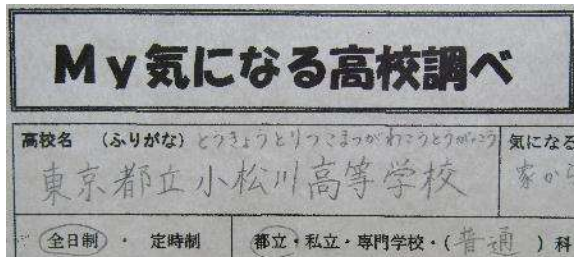 My気になる高校調べ
高校名 (ふりがな) とうきょうとりつこまつがわこうとうがっこう 気になる
東京都立小松川高等学校 家から
全日制 ・ 定時制 都立・私立・専門学校・(普通)科